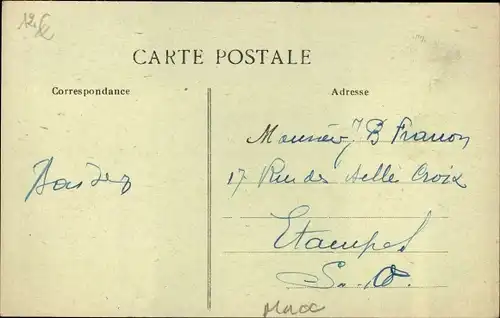 CARTE POSTALE
Correspondance
Adresse
Monsieur J B Franon
17 Rue des Belle Croix
Etampes
S. O.
Maroc